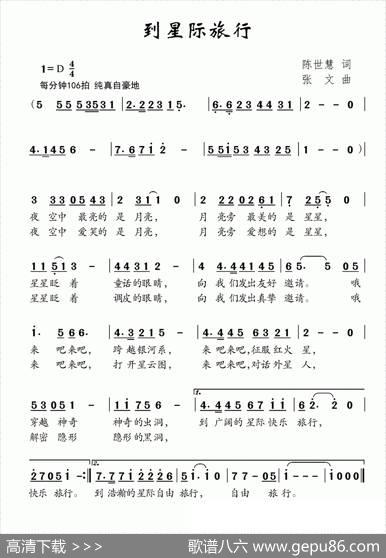 到星际旅行
1=D 4/4
每分钟106拍 纯真自豪地
陈世慧 词
张 文 曲
(5 55 53531 | 2·2231 5· | 6·6 23 4431 | 2 - - 0 |
4·145 6 - | 7·671 2 - | 55i3 4325 | 1 - - 0) |
3 33 05 43 | 2 31 1 0 | 2 22 26 1 | 7 25 5 0 |
夜 空中 最亮的 是 月亮, 月 亮旁 最美的 是 星星,
夜 空中 爱笑的 是 月亮, 月 亮旁 爱想的 是 星星,
1 1 5 1 3 - | 44 31 2 - | 4· 44 145 | 6 5· 5 05 |
星星眨 着 童话的眼睛, 向 我 们发出友好 邀请。 哦
星星眨 着 调皮的眼睛, 向 我 们发出真挚 邀请。 哦
来 吧来吧, 跨 越银河系, 来 吧来吧,征服红火 星,
来 吧来吧, 打 开星云图, 来 吧来吧,对话外星 人,
5 3 05 1 - | 1 i 75 6 - | 4· 44 567 | 6 2· 2 0 |
穿越 神奇 神奇的 虫洞, 到 广阔的 星际快乐 旅行。
解密 隐形 隐形的 黑洞,
快乐 旅行。 到 浩瀚的星际自由 旅行, 自由 旅 行。
高清下载 >>>
歌谱八六 www.gepu86.com